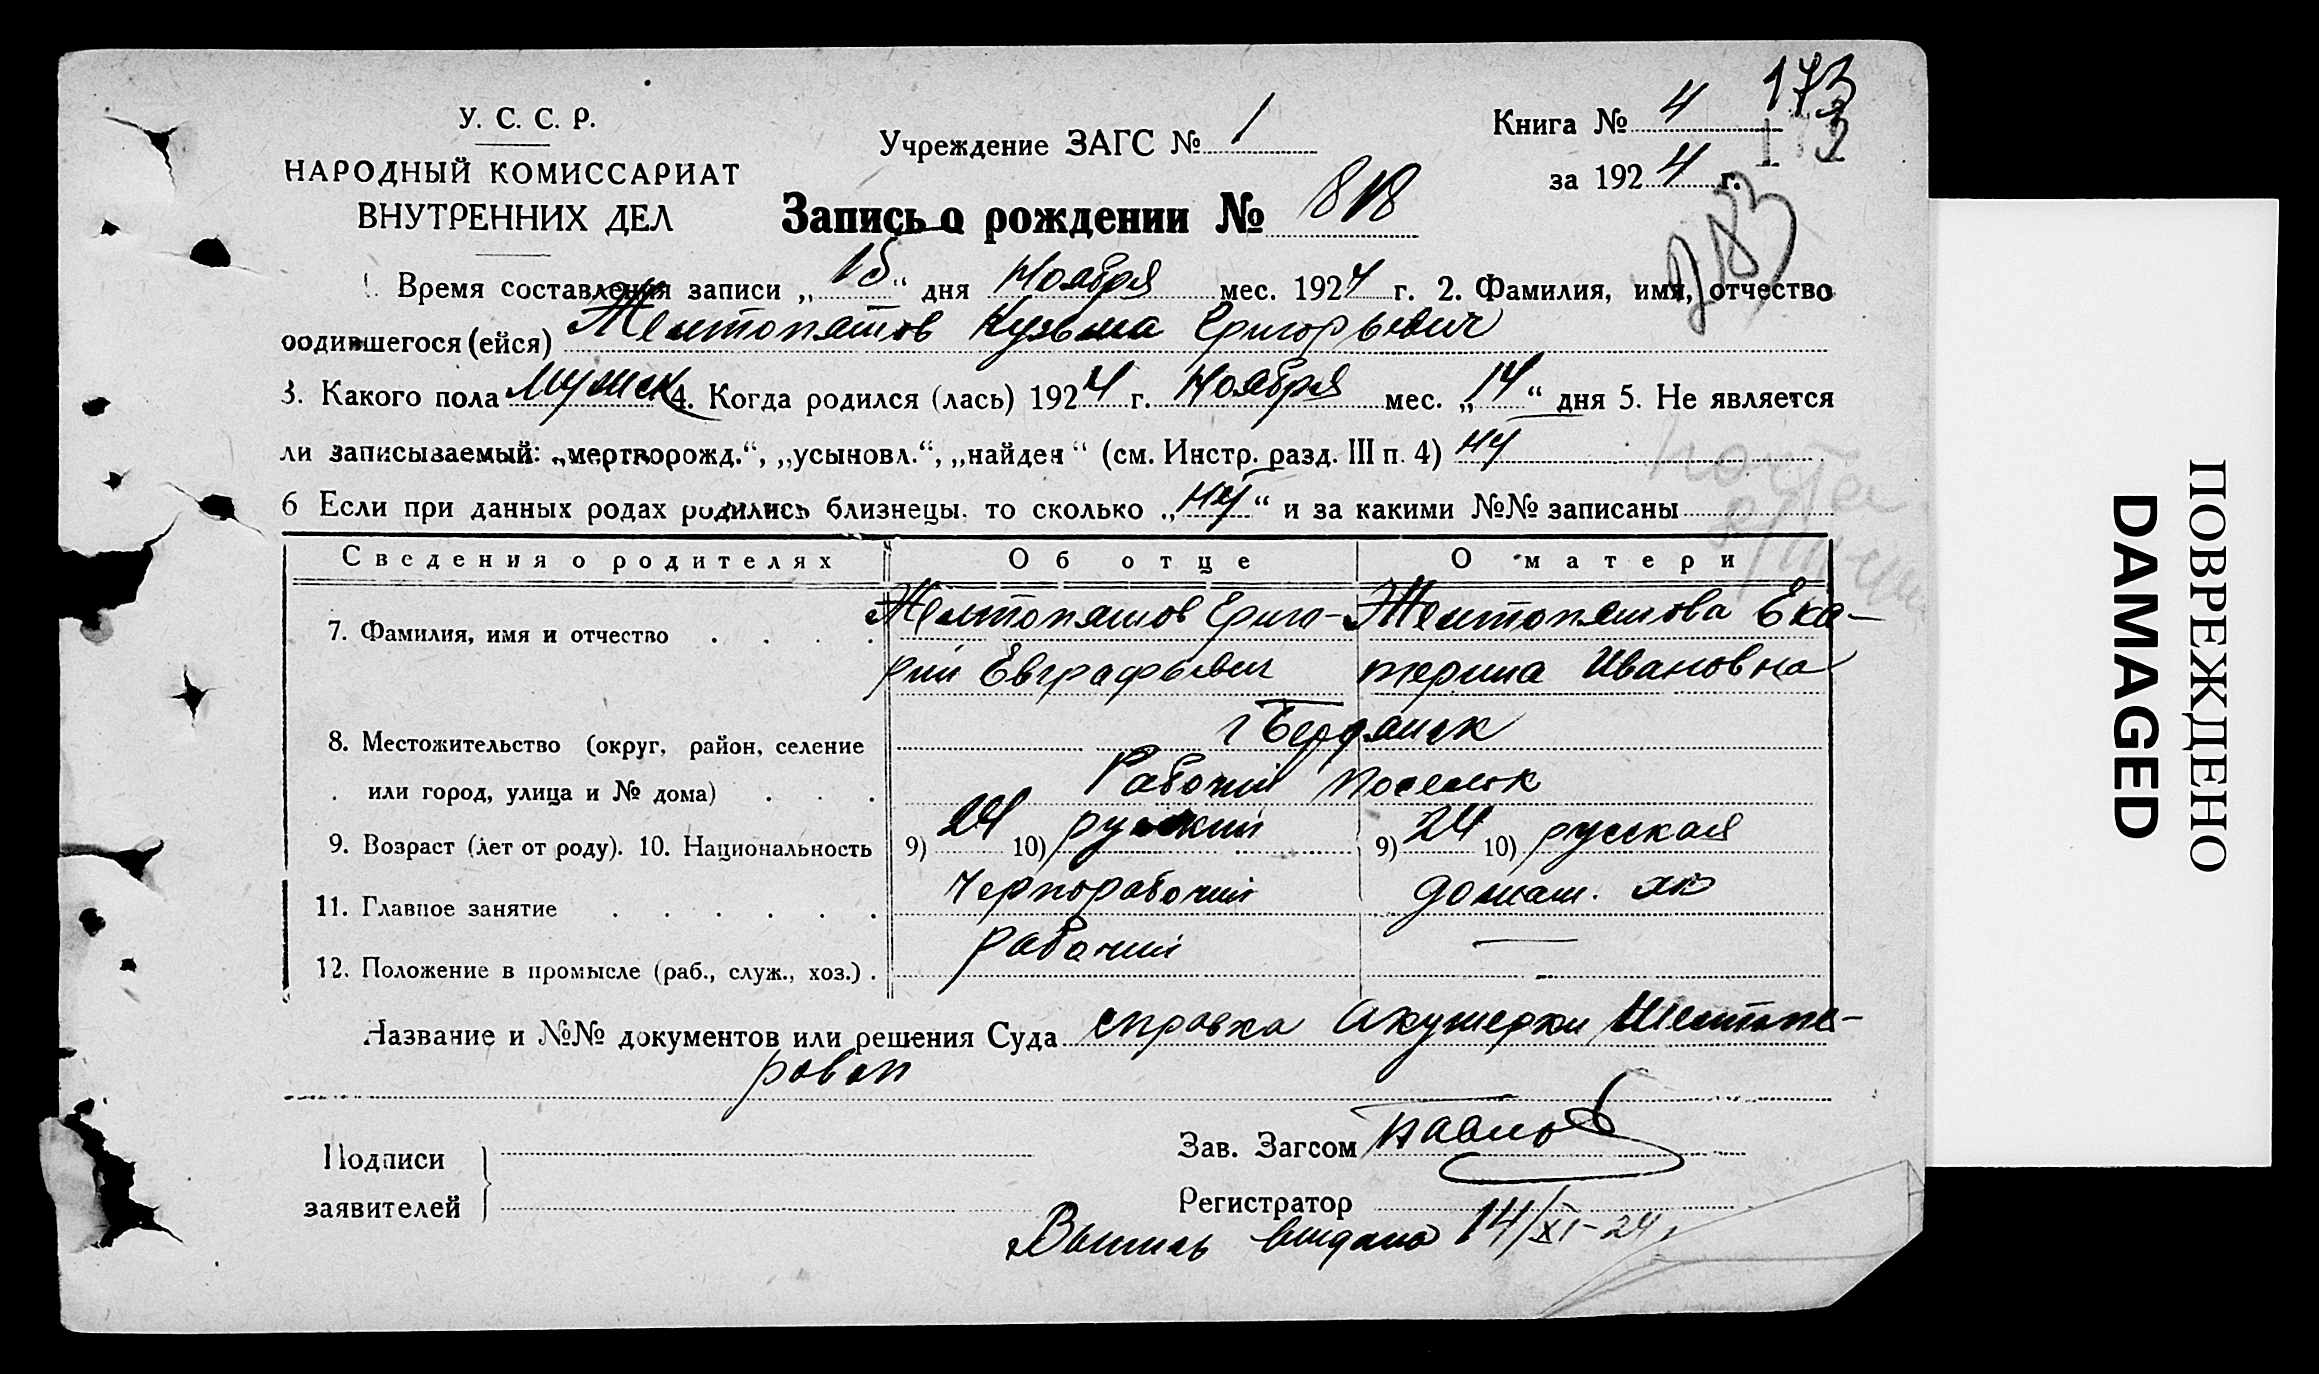 У. С. С. Р.
НАРОДНЫЙ КОМИССАРИАТ
ВНУТРЕННИХ ДЕЛ
Учреждение ЗАГС № 1
Книга № 4
173
за 1924 г.
283
Запись о рождении № 818
1. Время составления записи „15“ дня Ноября мес. 1924 г. 2. Фамилия, имя, отчество
родившегося (ейся) Желтопятов Кузьма Григорьевич
3. Какого пола Мужск 4. Когда родился (лась) 1924 г. Ноября мес. „14“ дня 5. Не является
ли записываемый: „мертворожд.“, „усыновл.“, „найден“ (см. Инстр. разд. III п. 4)
6 Если при данных родах родились близнецы. то сколько и за какими №№ записаны
Сведения о родителях Об отце О матери
7. Фамилия, имя и отчество Желтопятов Григо- Желтопятова Ека-
рий Евграфьевич терина Ивановна
8. Местожительство (округ, район, селение г Бердянск
или город, улица и № дома) Рабочий поселок
9. Возраст (лет от роду). 10. Национальность 9) 24 10) русский 9) 24 10) русская
11. Главное занятие Чернорабочий домаш. хоз
12. Положение в промысле (раб., служ., хоз.) рабочий —
Название и №№ документов или решения Суда справка Акушерки Шестопе-
ровой
Подписи
заявителей
Зав. Загсом Павлов
Регистратор
Выпись выдана 14/XI-24 г
ПОВРЕЖДЕНО
DAMAGED